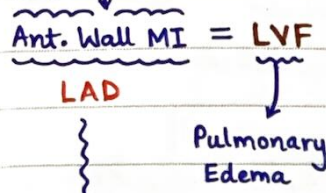 Ant. Wall MI = LVF
LAD
Pulmonary
Edema